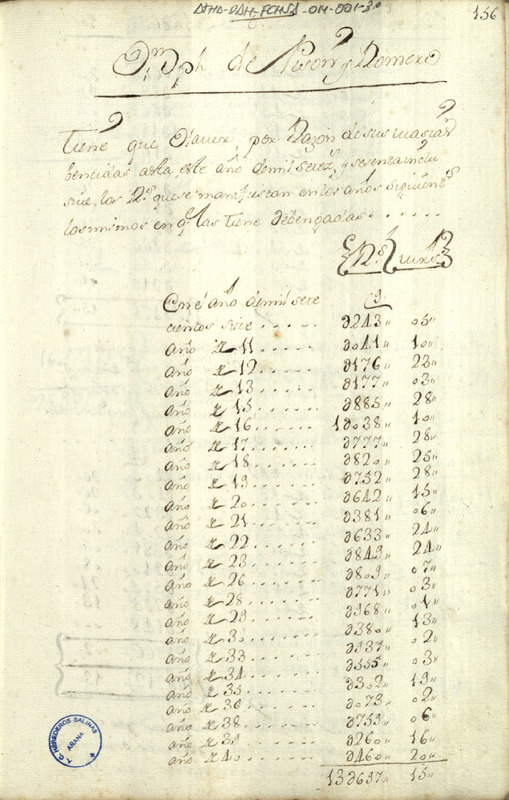 ATHA-DAH-FCHSA-014-001-30
156
Dn. Jph de Pison y Romero
Tiene que Haver, por Razon de sus
bencidas asta este año de mil setezs
los Rs. que se en los años Siguientes
los mismos en qe. las tiene debengadas . . . . . .
Rs. mrs.
En el año de mil sete
cientos siete . . . . . ∂243,, 05,,
año de 11 . . . . . ∂041,, 10,,
año de 12 . . . . . ∂176,, 23,,
año de 13 . . . . . ∂177,, 03,,
año de 15 . . . . . ∂885,, 28,,
año de 16 . . . . . 1∂038,, 10,,
año de 17 . . . . . ∂777,, 28,,
año de 18 . . . . . ∂820,, 25,,
año de 19 . . . . . ∂752,, 28,,
año de 20 . . . . . ∂642,, 15,,
año de 21 . . . . . ∂381,, 06,,
año de 22 . . . . . ∂633,, 24,,
año de 23 . . . . . ∂849,, 24,,
año de 26 . . . . . ∂809,, 07,,
año de 28 . . . . . ∂771,, 03,,
año de 29 . . . . . ∂968,, 01,,
año de 30 . . . . . ∂380,, 13,,
año de 33 . . . . . ∂937,, 02,,
año de 34 . . . . . ∂555,, 03,,
año de 35 . . . . . ∂302,, 19,,
año de 36 . . . . . ∂073,, 02,,
año de 38 . . . . . ∂759,, 06,,
año de 39 . . . . . ∂260,, 16,,
año de 40 . . . . . ∂460,, 20,,
13∂697,, 15,,
T. C. HEREDEROS SALINAS
AÑANA